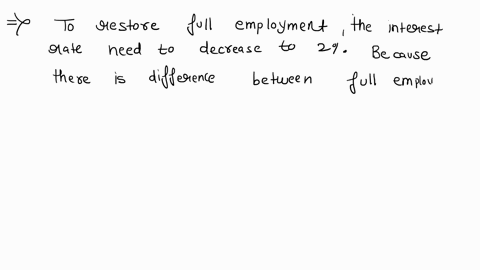 ⇒ To restore full employment, the interest
rate need to decrease to 2%. Because
there is difference between full emplou